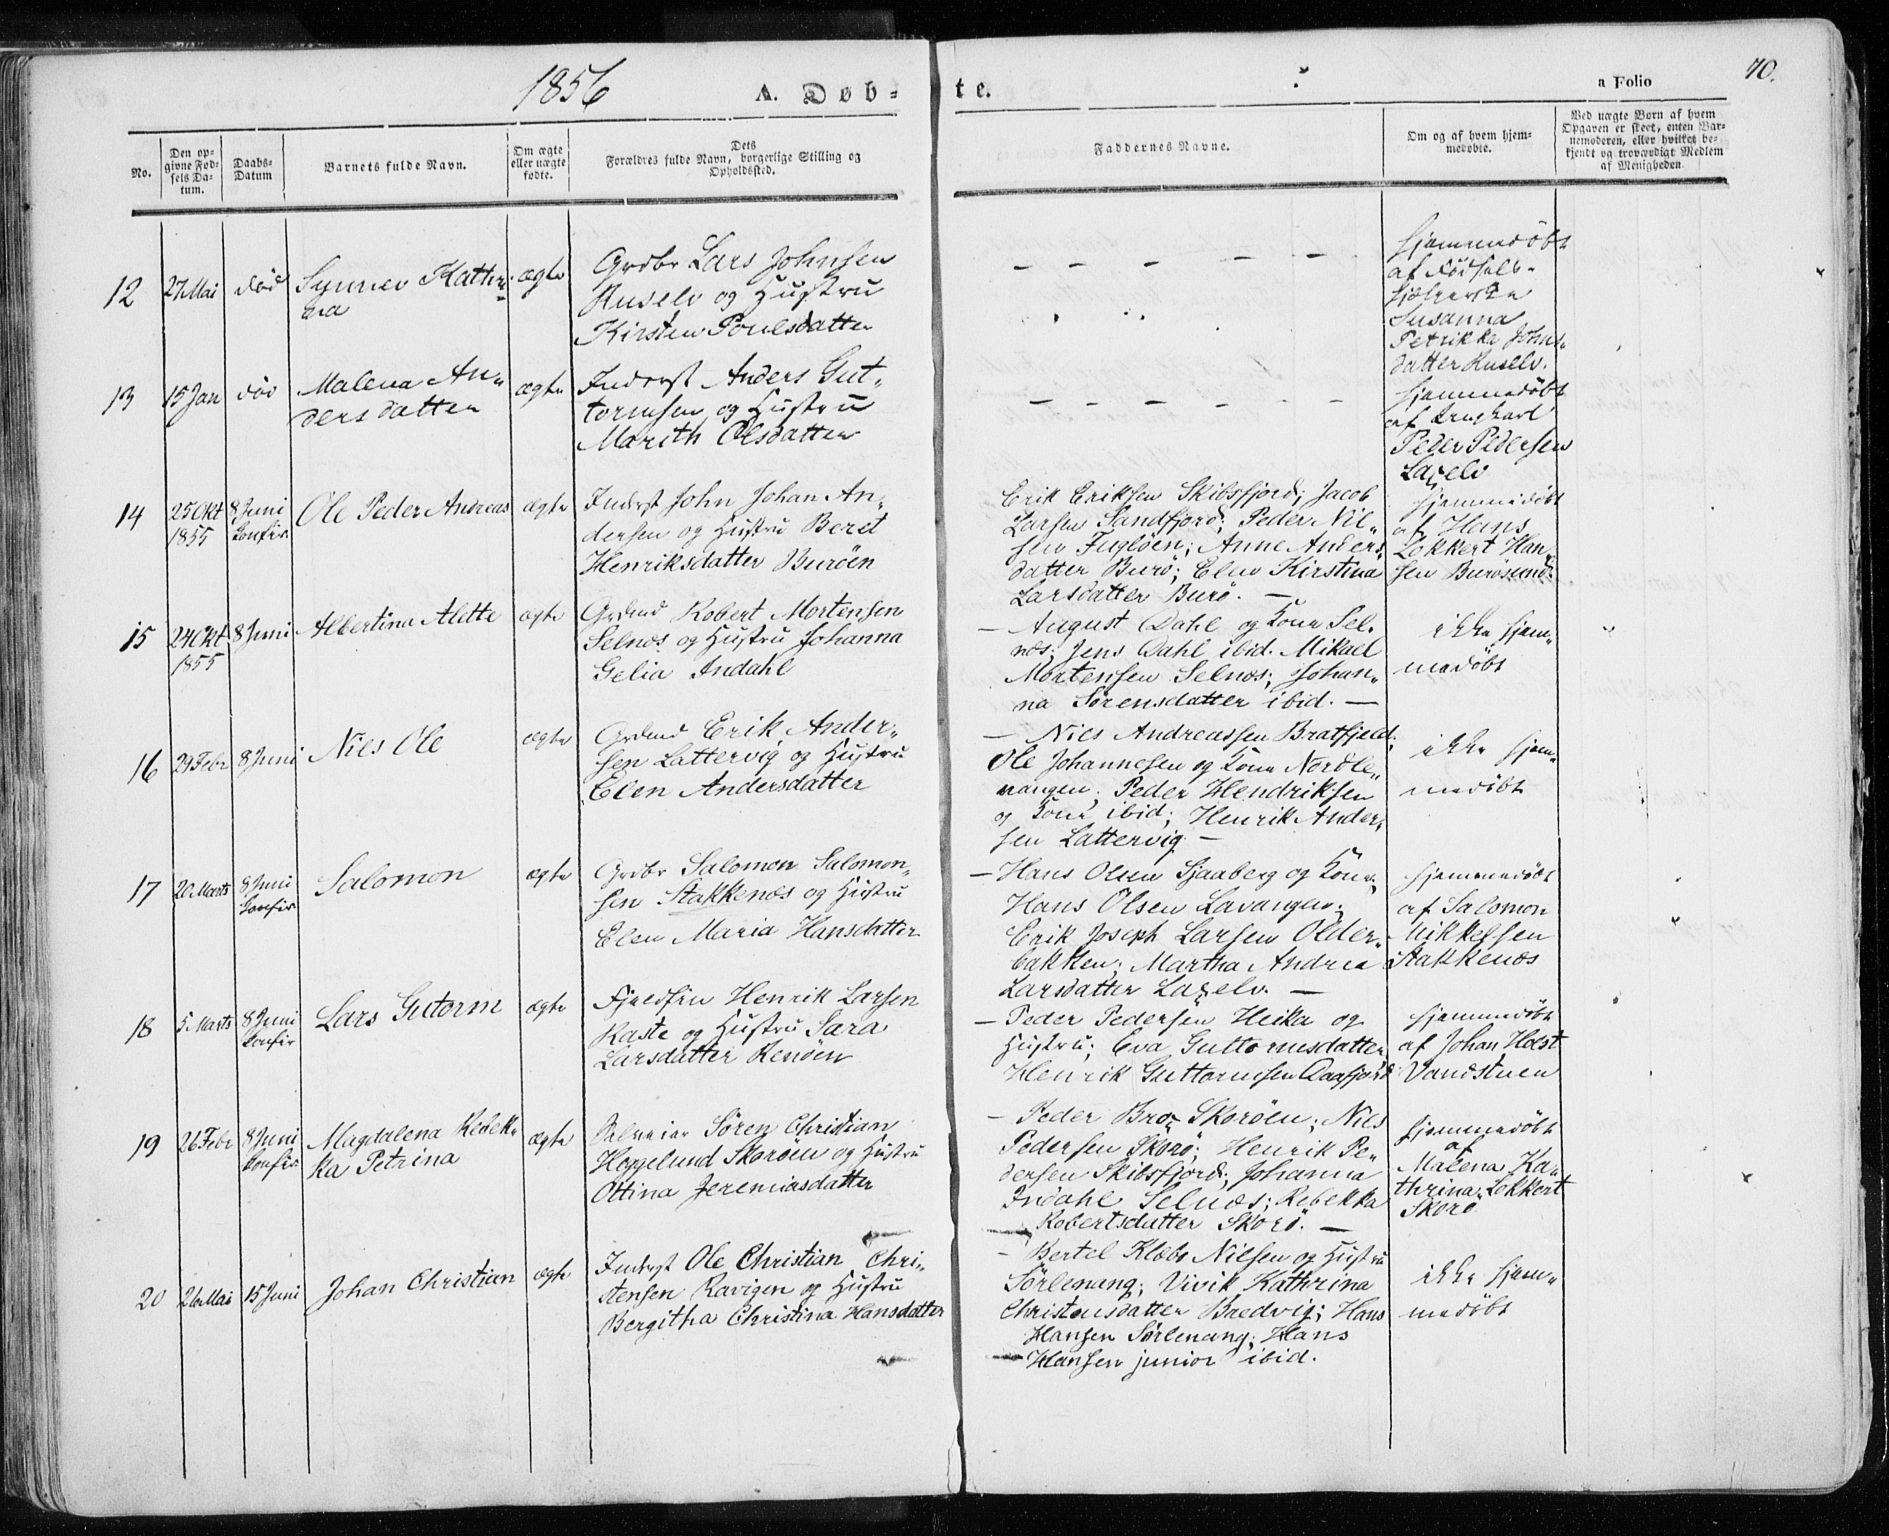 1856
A. Døb-
te.
a Folio
70.
No.
Den op-
givne Fød-
sels Da-
tum.
Daabs-
Datum
Barnets fulde Navn.
Om ægte
eller uægte
fødte.
Dets
Forældres fulde Navn, borgerlige Stilling og
Opholdssted.
Faddernes Navne.
Om og af hvem hjem-
medøbte.
Ved uægte Børn af hvem
Opgaven er skeet, enten Bar-
nemoderen, eller hvilket be-
kjendt og troværdigt Medlem
af Menigheden.
12
27 Mai
død
Synnev Kathri-
na
ægte
Grdbr Lars Johnsen
Ruselv og Hustru
Kirsten Poulsdatter
- - - - - -
Hjemmedøbt
af Fødsels-
hjelperske
Susanna
Petrikka Johns-
datter Ruselv.
13
15 Jan
død
Malena An-
dersdatter
ægte
Inderst Anders Gut-
tormsen og Hustru
Marith Olsdatter
- - - - - -
Hjemmedøbt
af
Peder Pedersen
Laxelv
14
25 Okt
1855
8 Juni
Confir.
Ole Peder Andreas
ægte
Inderst John Johan An-
dersen og Hustru Beret
Henriksdatter Burøen
Erik Eriksen Skibsfjord; Jacob
Larsen Sandfjord; Peder Nil-
sen Fugløen; Anne Anders-
datter Burø; Elen Kirstina
Larsdatter Burø. -
Hjemmedøbt
af Hans
Lokkert Han-
sen Burøsund.
15
24 Okt
1855
8 Juni
Albertina Alette
ægte
Grdmd Robert Mortensen
Selnæs og Hustru Johanna
Gelia Indahl
- August Dahl og Kone Sel-
næs; Jens Dahl ibid. Mikael
Mortensen Selnæs; Johan-
na Sørensdatter ibid. -
ikke hjem-
medøbt
16
29 Febr
8 Juni
Niels Ole
ægte
Grdmd Erik Ander-
sen Lattervig og Hustru
Elen Andersdatter
- Niels Andreassen Bratfjeld;
Ole Johannesen og Kone Nordle-
nangen; Peder Hendriksen
og Kone ibid; Henrik Ander-
sen Lattervig -
ikke hjem-
medøbt
17
20 Marts
8 Juni
Confir
Salomon
ægte
Grdbr Salomon Salomon-
sen Stakkenæs og Hustru
Elen Maria Hansdatter
- Hans Olsen Sjaaberg og Kone;
Hans Olsen Lavangen;
Erik Joseph Larsen Older-
bakken; Martha Andrea
Larsdatter Laxelv. -
Hjemmedøbt
af Salomon
Mikkelsen
Stakkenæs
18
5 Marts
8 Juni
Confir
Lars Gutorm
ægte
Fjeldfin Henrik Larsen
Kaste og Hustru Sara
Larsdatter Renøen
- Peder Pedersen Heika og
Hustru; Eva Guttormsdatter
Henrik Guttormsen Daafjord
Hjemmedøbt
af Johan Holst
Vandstuen
19
26 Febr
8 Juni
Confir
Magdalena Rebek-
ka Petrina
ægte
Søren Christian
Heggelund Skorøen og Hustru
Ottina Jeremiasdatter
- Peder Brox Skorøen; Niels
Pedersen Skorø; Henrik Pe-
dersen Skibsfjord; Johanna
Indahl Selnæs; Rebekka
Robertsdatter Skorø. -
Hjemmedøbt
af
Malena Ka-
thrina Lokkert
Skorø
20
26 Mai
15 Juni
Johan Christian
ægte
Inderst Ole Christian Chri-
stensen Ravigen og Hustru
Bergitha Christina Hansdatter
- Bertel Klæbo Nilsen og Hustru
Sørlenang; Vivik Kathrina
Christensdatter Bredvig; Hans
Hansen Sørlenang; Hans
Hansen junior ibid.
ikke hjem-
medøbt